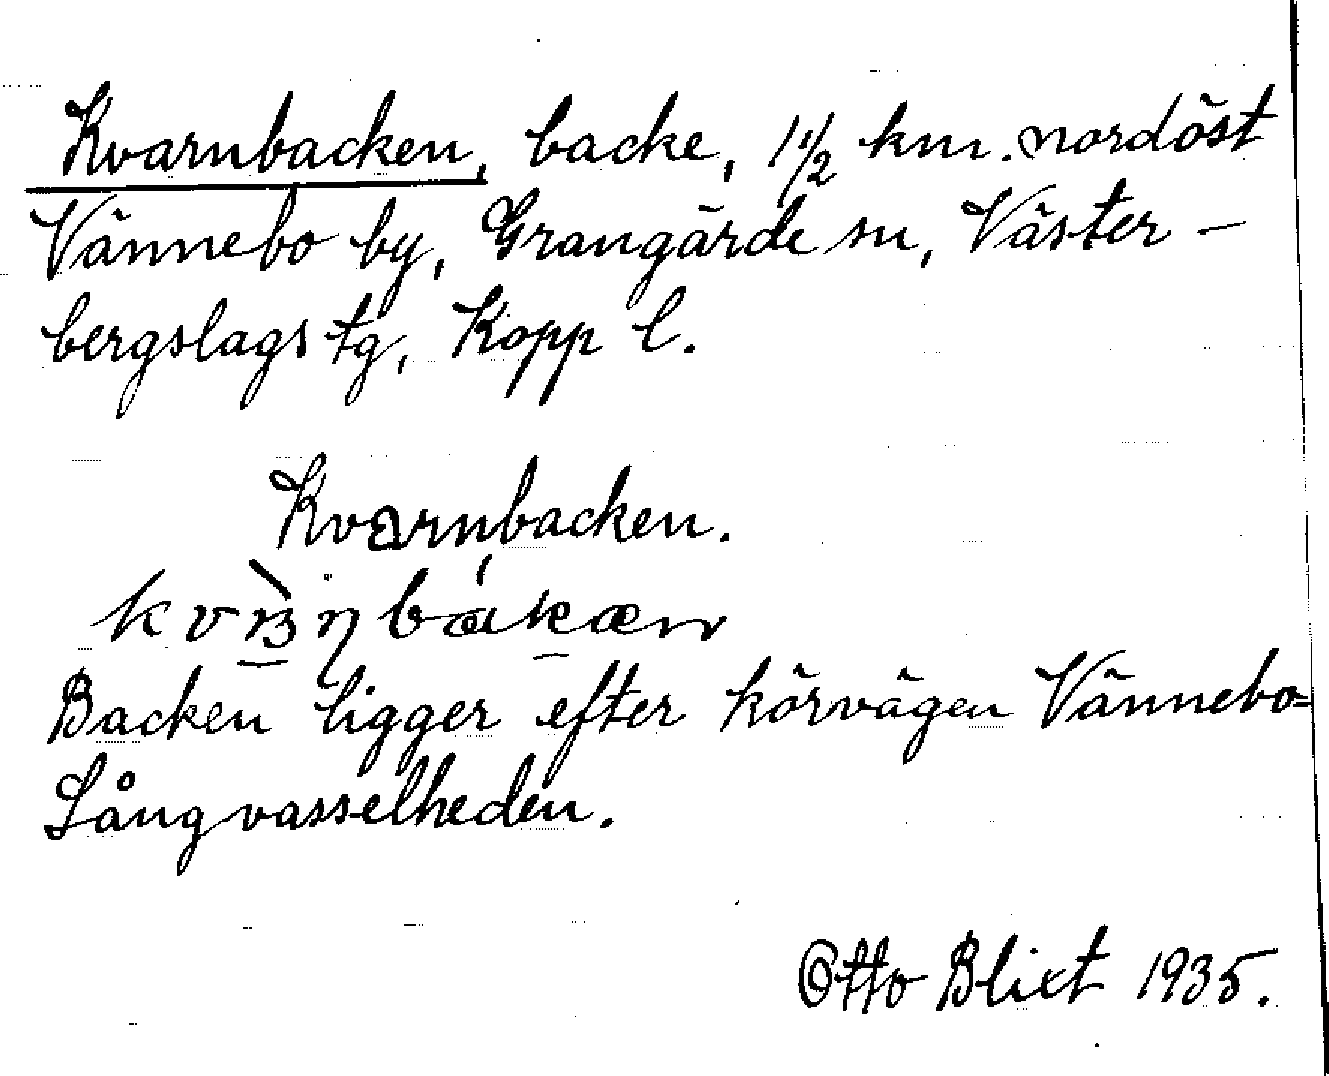 Kvarnbacken, backe, 1 1/2 km. nordöst
Vännebo by, Grangärde sn, Väster-
bergslags tg, Kopp l.
Kvarnbacken.
Backen ligger efter körvägen Vännebo=
Långvasselheden.
Otto Blixt 1935.